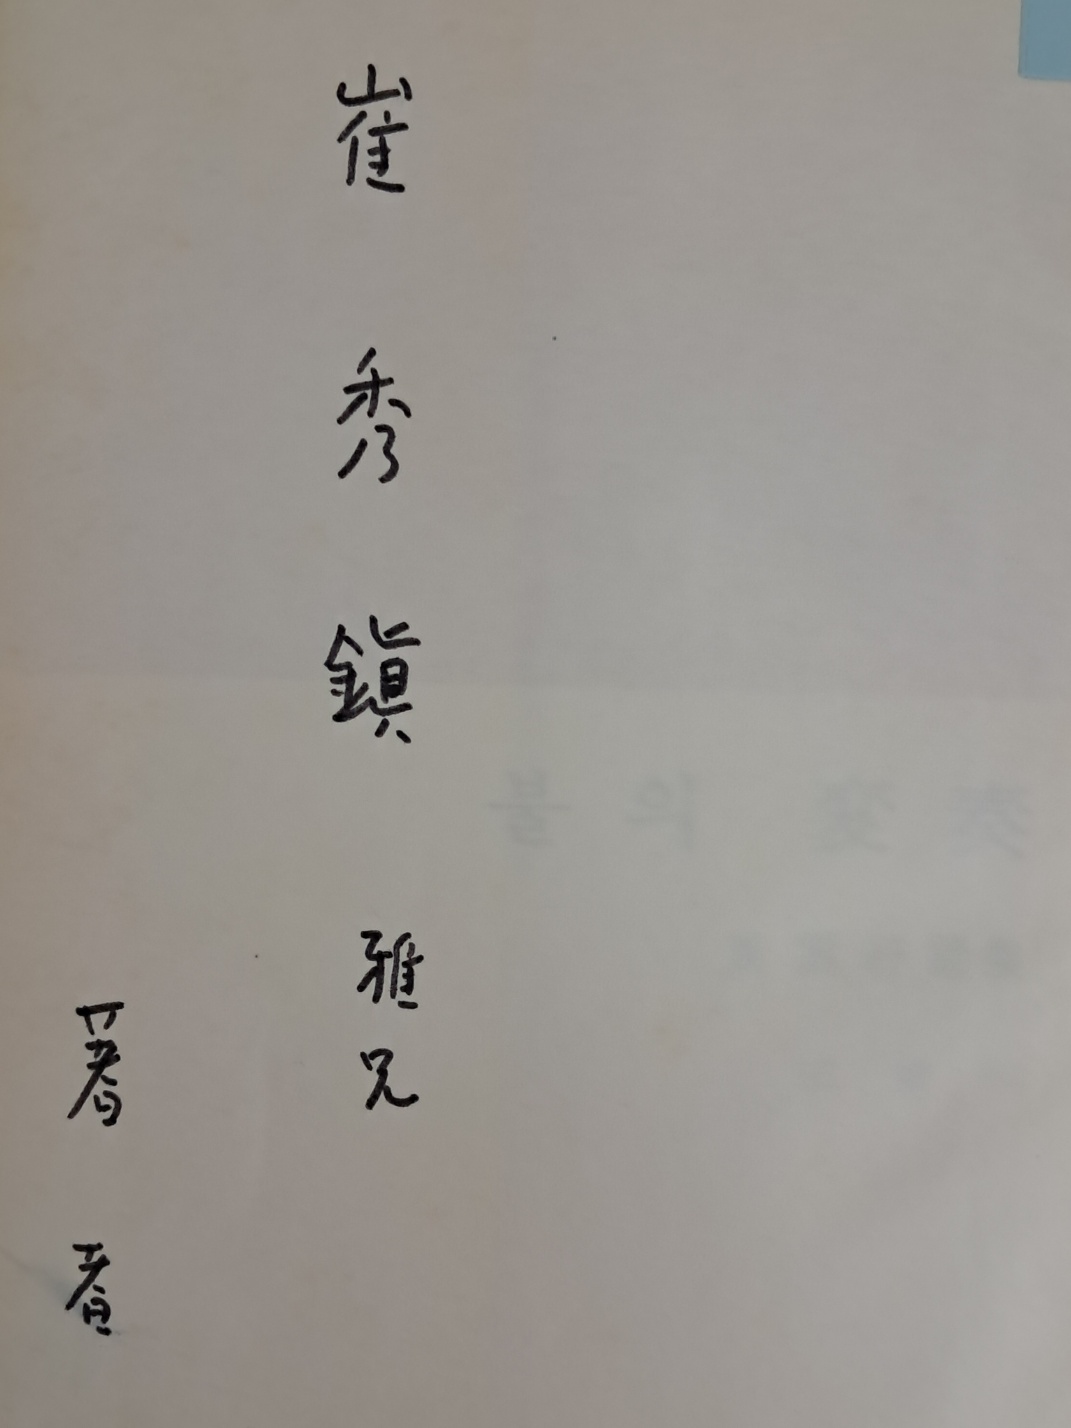 崔秀鎭 雅兄
著者